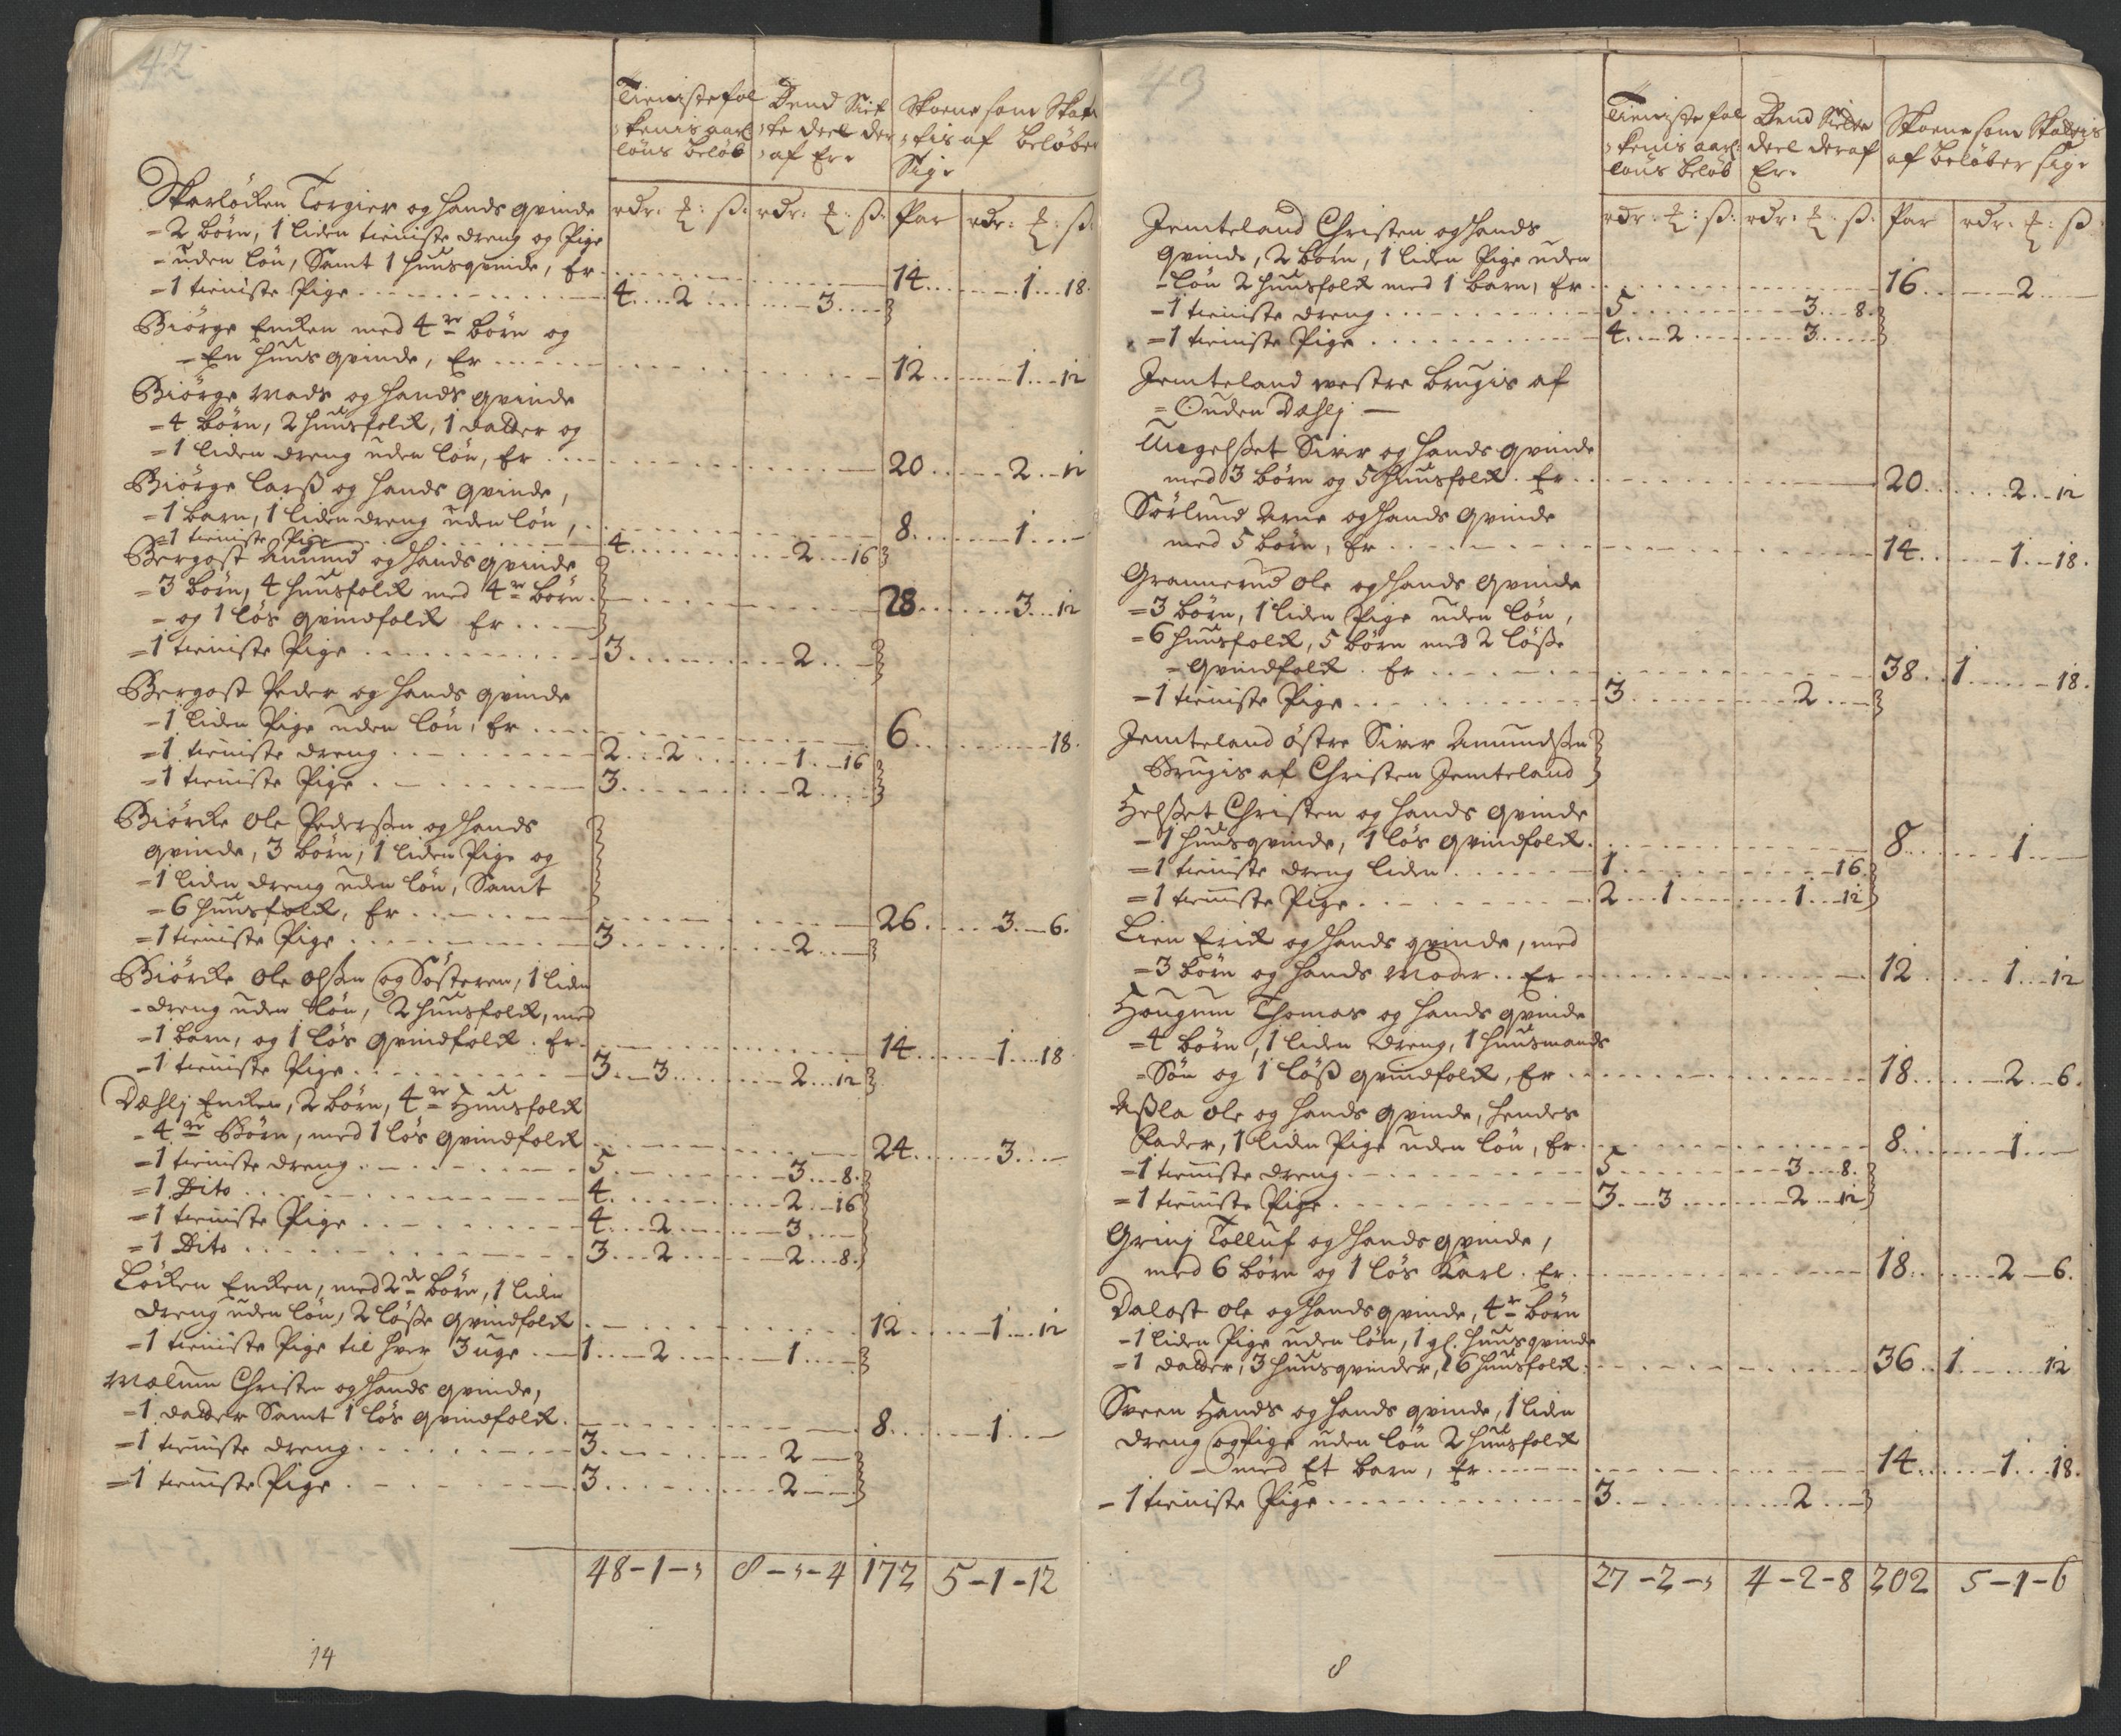 42
Tienistefol Dend Siet Skoene som Skat
-kenis aarl: -te deel der -tis af beløber
löns beløb -af Er Sig
rdr: ß: rdr: ß: Par rdr: ß:
Skarlöcken Torgier og hands qvinde
- 2 børn, 1 liden tieniste dreng og Pige
- uden løn, Samt 1 huusqvinde, Er 14 1 18
= 1 tieniste Pige 4 2 3
Biörge Encken med 4re børn og
- En huus qvinde, Er 12 1 12
Biörge Mads og hands qvinde
- 4 børn, 2 huusfolck, 1 datter og
= 1 liden dreng uden løn, Er 20 2 12
Biörge Larß og hands qvinde,
= 1 barn, 1 liden dreng uden løn, 8 1
= 1 tieniste Pige 4 2 16
Bergost Amund og hands qvinde
= 3 børn, 4 huusfolck med 4re børn
- og 1 løs qvindfolck Er 28 3 12
= 1 tieniste Pige 3 2
Bergost Peder og hands qvinde
- 1 liden Pige uden løn, Er 6 18
= 1 tieniste dreng 2 2 1 16
= 1 tieniste Pige 3 2
Biörcke Ole Pederßen og hands
qvinde, 3 børn, 1 liden Pige og
- 1 liden dreng uden løn, Samt
- 6 huusfolck, Er 26 3 6
= 1 tieniste Pige 3 2
Biörcke Ole Olßen og Søsteren, 1 liden
- dreng uden løn, 2 huusfolck, med
- 1 barn, og 1 løs qvindfolck. Er 14 1 18
- 1 tieniste Pige 3 3 2 12
Dæhlj Encken, 2 børn, 4re Huusfolck
- 4re Børn, med 1 løs qvindfolck 24 3
= 1 tieniste dreng 5 3 8
= 1 Dito 4 2 16
= 1 tieniste Pige 4 2 3
= 1 Dito 3 2 2 8
Löcken Encken, med 2de børn, 1 liden
dreng uden løn, 2 løße qvindfolck 12 1 12
- 1 tieniste Pige til hver 3 uge 1 2 1
Mælum Christen og hands qvinde,
= 1 datter Samt 1 løs qvindfolck 8 1
= 1 tieniste dreng 3 2
= 1 tieniste Pige 3 2
48-1-" 8-"-4 172 5-1-12
14
43
Tieniste fol Dend Siette Skoene som Skattis
-kenis aarl: deel deraf af beløber sig
löns beløb Er
rdr: ß: rdr: ß: Par rdr: ß
Jemteland Christen og hands
qvinde, 2 børn, 1 liden Pige uden
- løn 2 huusfolck med 1 barn, Er 16 2
- 1 tieniste dreng 5 3 8
= 1 tieniste Pige 4 2 3
Jemteland westre brugis af
= Ouden Dæhlj
Uegelßet Siver og hands qvinde
med 3 børn og 5 huusfolck. Er 20 2 12
Sörlund Arne og hands qvinde
med 5 børn, Er 14 1 18
Grannerud Ole og hands qvinde
= 3 børn, 1 liden Pige uden løn,
= 6 huusfolck, 5 børn med 2 løße
- qvindfolck. Er 38 1 18
- 1 tieniste Pige 3 2
Jemteland östre Siver Amundßen
Brugis af Christen Jemteland
Helßet Christen og hands qvinde
- 1 huusqvinde, 1 løs qvindfolck 8 1
= 1 tieniste dreng liden 1 16
= 1 tieniste Pige 2 1 1 12
Lien Erick og hands qvinde, med
= 3 børn og hands Moder. Er 12 1 12
Hougum Thomas og hands qvinde
= 4 børn, 1 liden dreng, 1 huusmands
- Søn og 1 løß qvindfolck, Er 18 2 6
Aßla Ole og hands qvinde, hendes
Fader, 1 liden Pige uden løn, Er 8 1
- 1 tieniste dreng 5 3 8
= 1 tieniste Pige 3 3 2 12
Grinj Tolluf og hands qvinde,
med 6 børn og 1 løs Karl. Er 18 2 6
Dalost Ole og hands qvinde, 4re børn
- 1 liden Pige uden løn, 1 gl. huusqvinde
= 1 datter, 3 huusqvinder, 16 huusfolck 36 1 12
Sveen Hands og hands qvinde, 1 liden
dreng og Pige uden løn 2 huusfolck
- med Et barn, Er 14 1 18
- 1 tieniste Pige 3 2
27-2-" 4-2-8 202 5-1-6
8